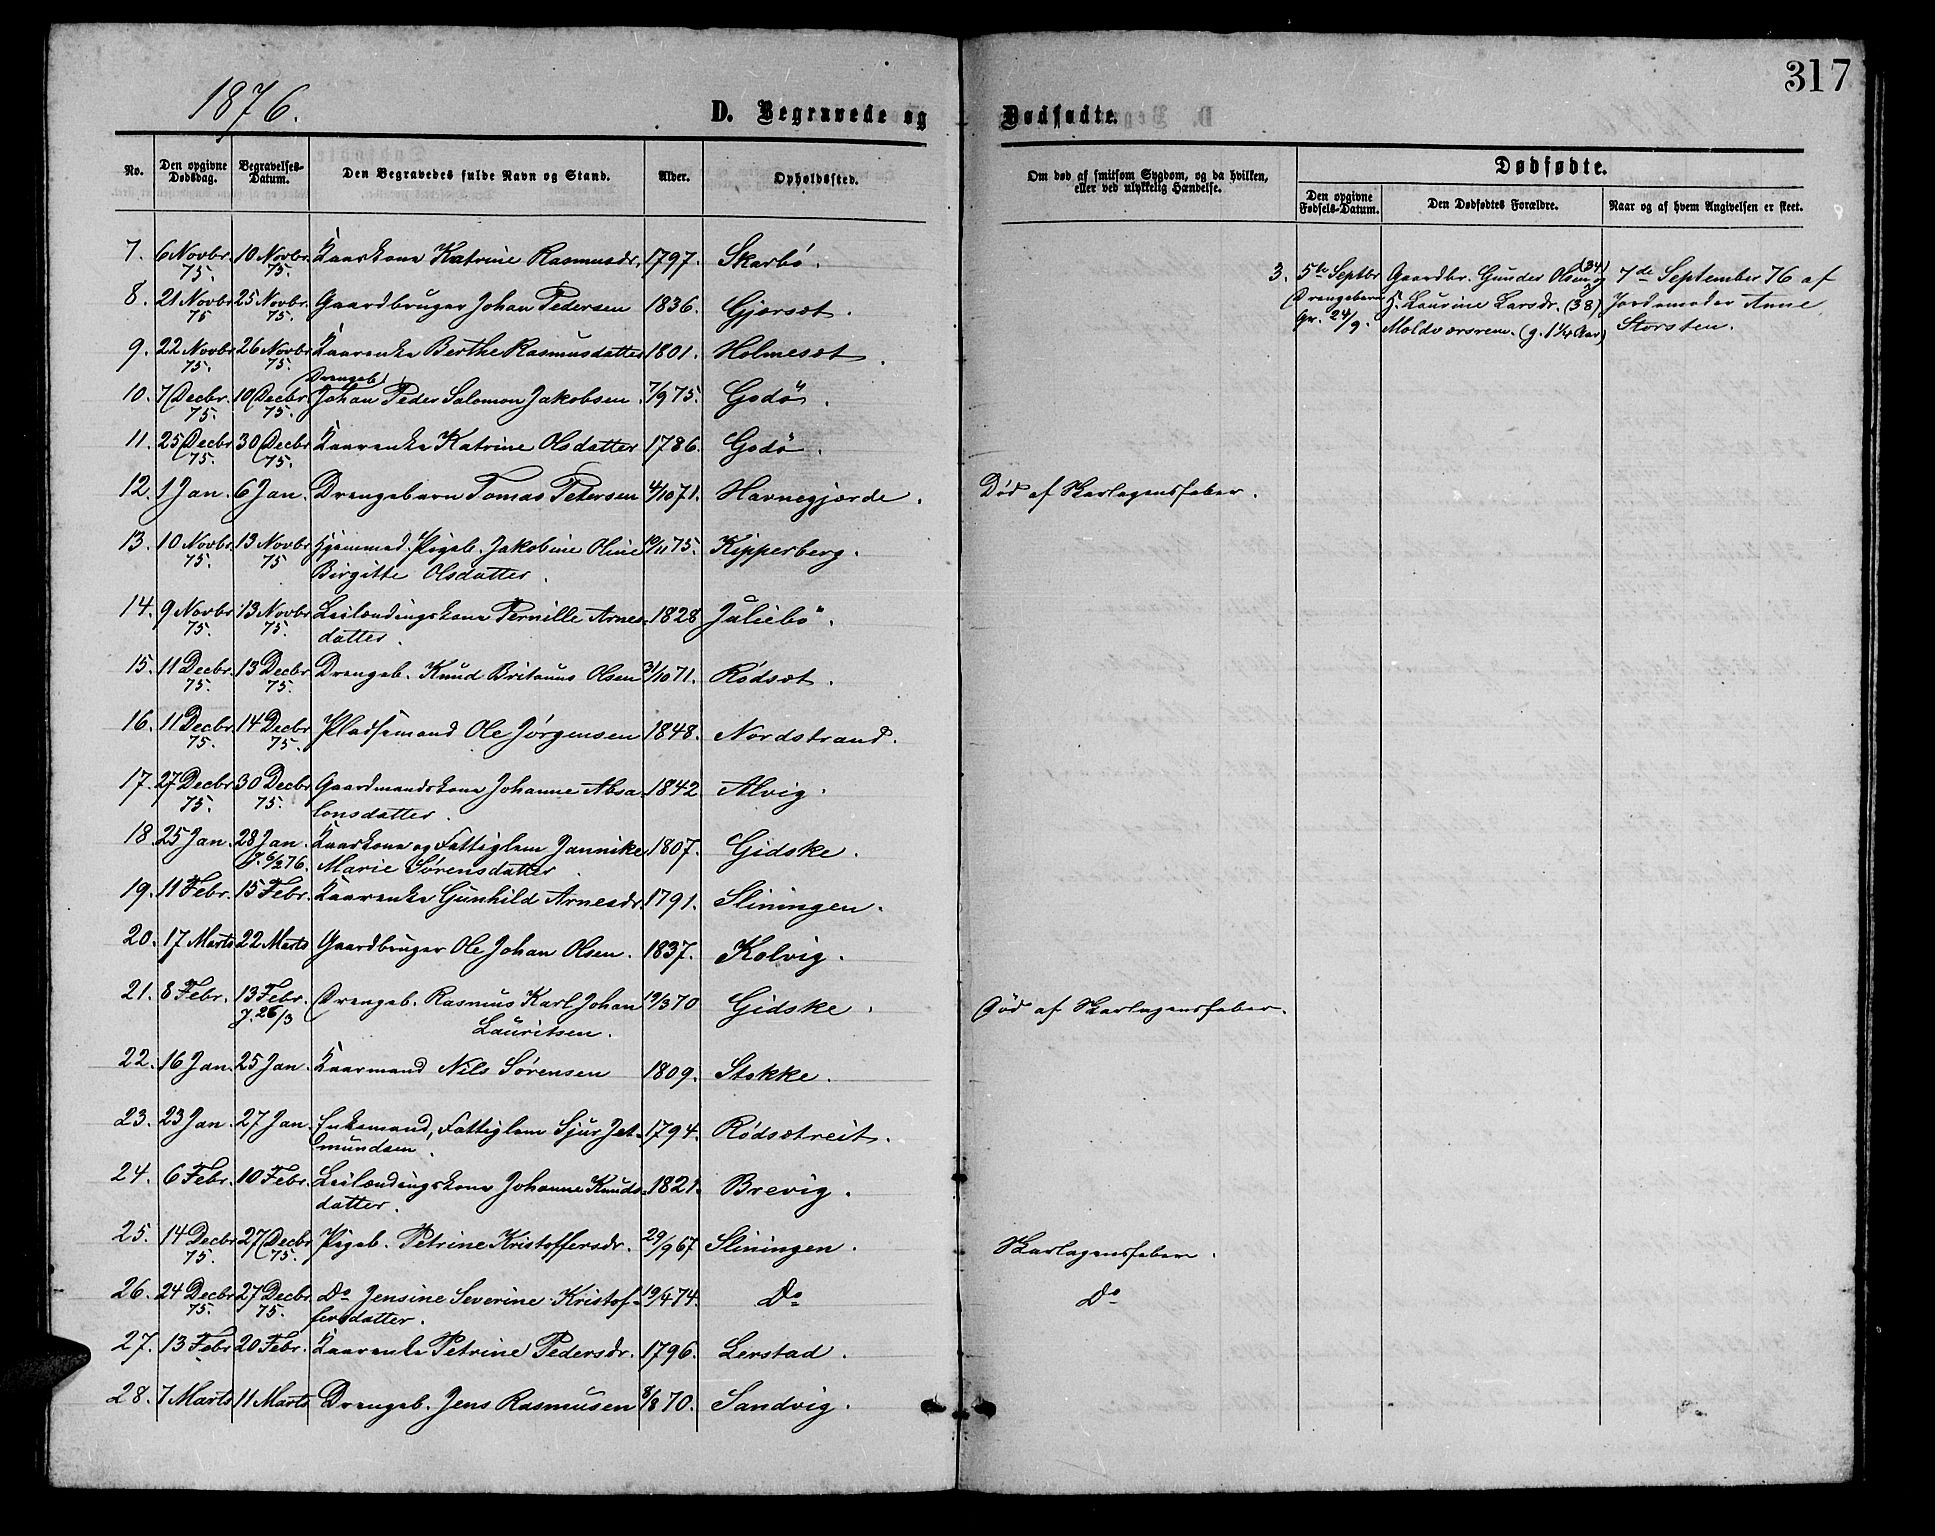 317
1876.
D. Begravede og Dødfødte.
No. Den opgivne Dødsdag. Begravelses-Datum. Den Begravedes fulde Navn og Stand. Alder. Opholdssted. Om død af smitsom Sygdom, og da hvilken, eller ved ulykkelig Hændelse. Dødfødte.
Den opgivne Fødsels-Datum. Den Dødfødtes Forældre. Naar og af hvem Angivelsen er skeet.
7. 6 Novbr. 75. 10 Novbr. 75. Kaarkone Katrine Rasmusdr. 1797. Skarbö.
3. 5te Septbr Gaardbr. Gunder Olsen (34) og 7de September 76 af
Drengebarn H. Laurine Larsdr. (38) Jordemoder Anne
Gr. 24/9. Moldværsrem. (g. 1 1/4 Aar) Storsten.
8. 21 Novbr 75 25 Novbr. 75. Gaardbruger Johan Pedersen 1836. Gjersæt.
9. 22 Novbr 75. 26 Novbr 75. Kaarenke Berthe Rasmusdatter 1801. Holmesæt.
Drengeb.
10. 7 Decbr. 75. 10 Decbr. 75. Johan Peder Salomon Jakobsen. 7/9 75. Godö.
11. 25 Decbr 75. 30 Decbr 75. Kaarenke Katrine Olsdatter 1786. Godö.
12. 1 Jan. 6 Jan. Drengebarn Tomas Petersen 4/10 71. Havnegjærde. Död af Skarlagensfeber.
13. 10 Novbr 75. 13 Novbr 75 Hjemmed. Pigeb. Jakobine Oline 10/11 75. Kipperberg.
Birgitte Olsdatter.
14. 9 Novbr 75. 13 Novbr 75. Leilændingskone Pernille Arnes- 1828 Juliebö.
datter.
15. 11 Decbr. 75. 13 Decbr 75. Drengeb. Knud Britanus Olsen 31/10 71. Rödsæt.
16. 11 Decbr. 75. 14 Decbr 75. Pladsemand Ole Jörgensen 1848. Nordstrand.
17. 27 Decbr 75. 30 Decbr 75. Gaardmandskone Johanne Absa- 1842 Alvig.
lonsdatter.
18. 25 Jan. 28 Jan. Kaarkone og Fattiglem Jannike 1807. Gidske.
J. 6/2 76. Marie Sörensdatter
19. 11 Febr. 15 Febr. Kaarenke Gunhild Arnesdr. 1791. Sliningen.
20. 17 Marts 22 Marts Gaardbruger Ole Johan Olsen. 1837. Kolvig.
21. 8 Febr. 13 Febr. Drengeb. Rasmus Karl Johan 19/3 70 Gidske. Död af Skarlagensfeber.
J. 26/3 Lauritsen.
22. 16 Jan. 25 Jan. Kaarmand Nils Sörensen 1809. Stokke.
23. 23 Jan. 27 Jan. Enkemand, Fattiglem Sjur Jet- 1794. Rödsætreit.
mundsen.
24. 6 Febr. 10 Febr. Leilændingskone Johanne Knuds- 1821. Brevig.
datter.
25. 14 Decbr 75. 27 Decbr 75. Pigeb. Petrine Kristoffersdr. 29/9 67 Sliningen. Skarlagensfeber.
26. 24 Decbr 75. 27 Decbr. 75. Do Jensine Severine Kristof- 19/4 74. Do Do
fersdatter.
27. 13 Febr 20 Febr. Kaarenke Petrine Pedersdr. 1796. Lerstad.
28. 7 Marts 11 Marts Drengeb. Jens Rasmusen 8/8 70. Sandvig.